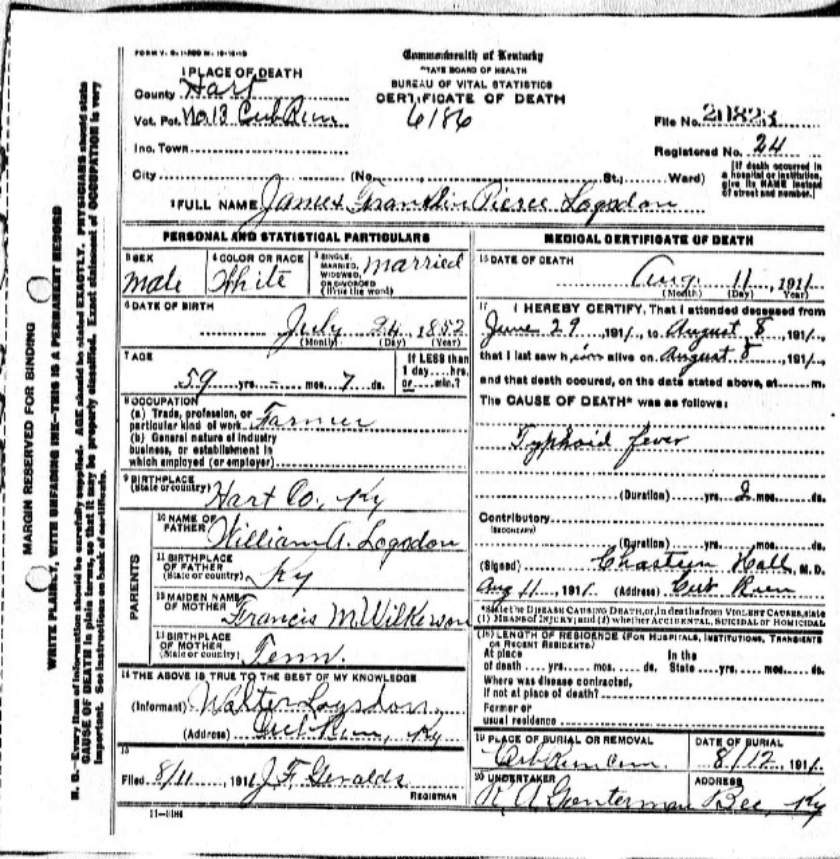 FORM V. S. 1-
Commonwealth of Kentucky
STATE BOARD OF HEALTH
BUREAU OF VITAL STATISTICS
CERTIFICATE OF DEATH
6186
1 PLACE OF DEATH
County Hart
Vot. Pct. No. 13 Cub Run
Inc. Town
City (No. St.; Ward)
File No. 20823
Registered No. 24
[If death occurred in a hospital or institution, give its NAME instead of street and number.]
2 FULL NAME James Franklin Pierce Logsdon
PERSONAL AND STATISTICAL PARTICULARS
3 SEX
male
4 COLOR OR RACE
White
5 SINGLE, MARRIED, WIDOWED, OR DIVORCED (Write the word)
married
6 DATE OF BIRTH
July 24, 1852
(Month) (Day) (Year)
7 AGE
59 yrs. - mos. 7 ds.
If LESS than 1 day....hrs. or....min.?
8 OCCUPATION
(a) Trade, profession, or particular kind of work Farmer
(b) General nature of industry business, or establishment in which employed (or employer)
9 BIRTHPLACE
(State or country) Hart Co, Ky
PARENTS
10 NAME OF FATHER William A. Logsdon
11 BIRTHPLACE OF FATHER (State or country) Ky
12 MAIDEN NAME OF MOTHER Francis M. Wilkerson
13 BIRTHPLACE OF MOTHER (State or country) Tenn.
14 THE ABOVE IS TRUE TO THE BEST OF MY KNOWLEDGE
(Informant) Walter Logsdon
(Address) Cub Run, Ky
15
Filed 8/11, 1911 J. F. Geralds
REGISTRAR
MEDICAL CERTIFICATE OF DEATH
16 DATE OF DEATH
Aug 11, 1911
(Month) (Day) Year)
17 I HEREBY CERTIFY, That I attended deceased from
June 29, 1911, to August 8, 1911,
that I last saw him alive on August 8, 1911,
and that death occured, on the date stated above, at....m.
The CAUSE OF DEATH* was as follows:
Typhoid fever
(Duration) yrs. 2 mos. ds.
Contributory
(SECONDARY)
(Duration) yrs. mos. ds.
(Signed) Chasteen Hall, M.D.
Aug 11, 1911 (Address) Cub Run
*State the DISEASE CAUSING DEATH, or, in deaths from VIOLENT CAUSES, state (1) MEANS OF INJURY; and (2) whether ACCIDENTAL, SUICIDAL or HOMICIDAL
(18) LENGTH OF RESIDENCE (FOR HOSPITALS, INSTITUTIONS, TRANSIENTS OR RECENT RESIDENTS)
At place of death....yrs....mos....ds. In the State....yrs....mos....ds.
Where was disease contracted,
if not at place of death?
Former or
usual residence
19 PLACE OF BURIAL OR REMOVAL
Cub Run Cem.
DATE OF BURIAL
8/12, 1911
20 UNDERTAKER
R A Gonterman
ADDRESS
Bee, Ky
MARGIN RESERVED FOR BINDING
WRITE PLAINLY, WITH UNFADING INK—THIS IS A PERMANENT RECORD
N. B.—Every item of information should be carefully supplied. AGE should be stated EXACTLY. PHYSICIANS should state CAUSE OF DEATH in plain terms, so that it may be properly classified. Exact statement of OCCUPATION is very important. See instructions on back of certificate.